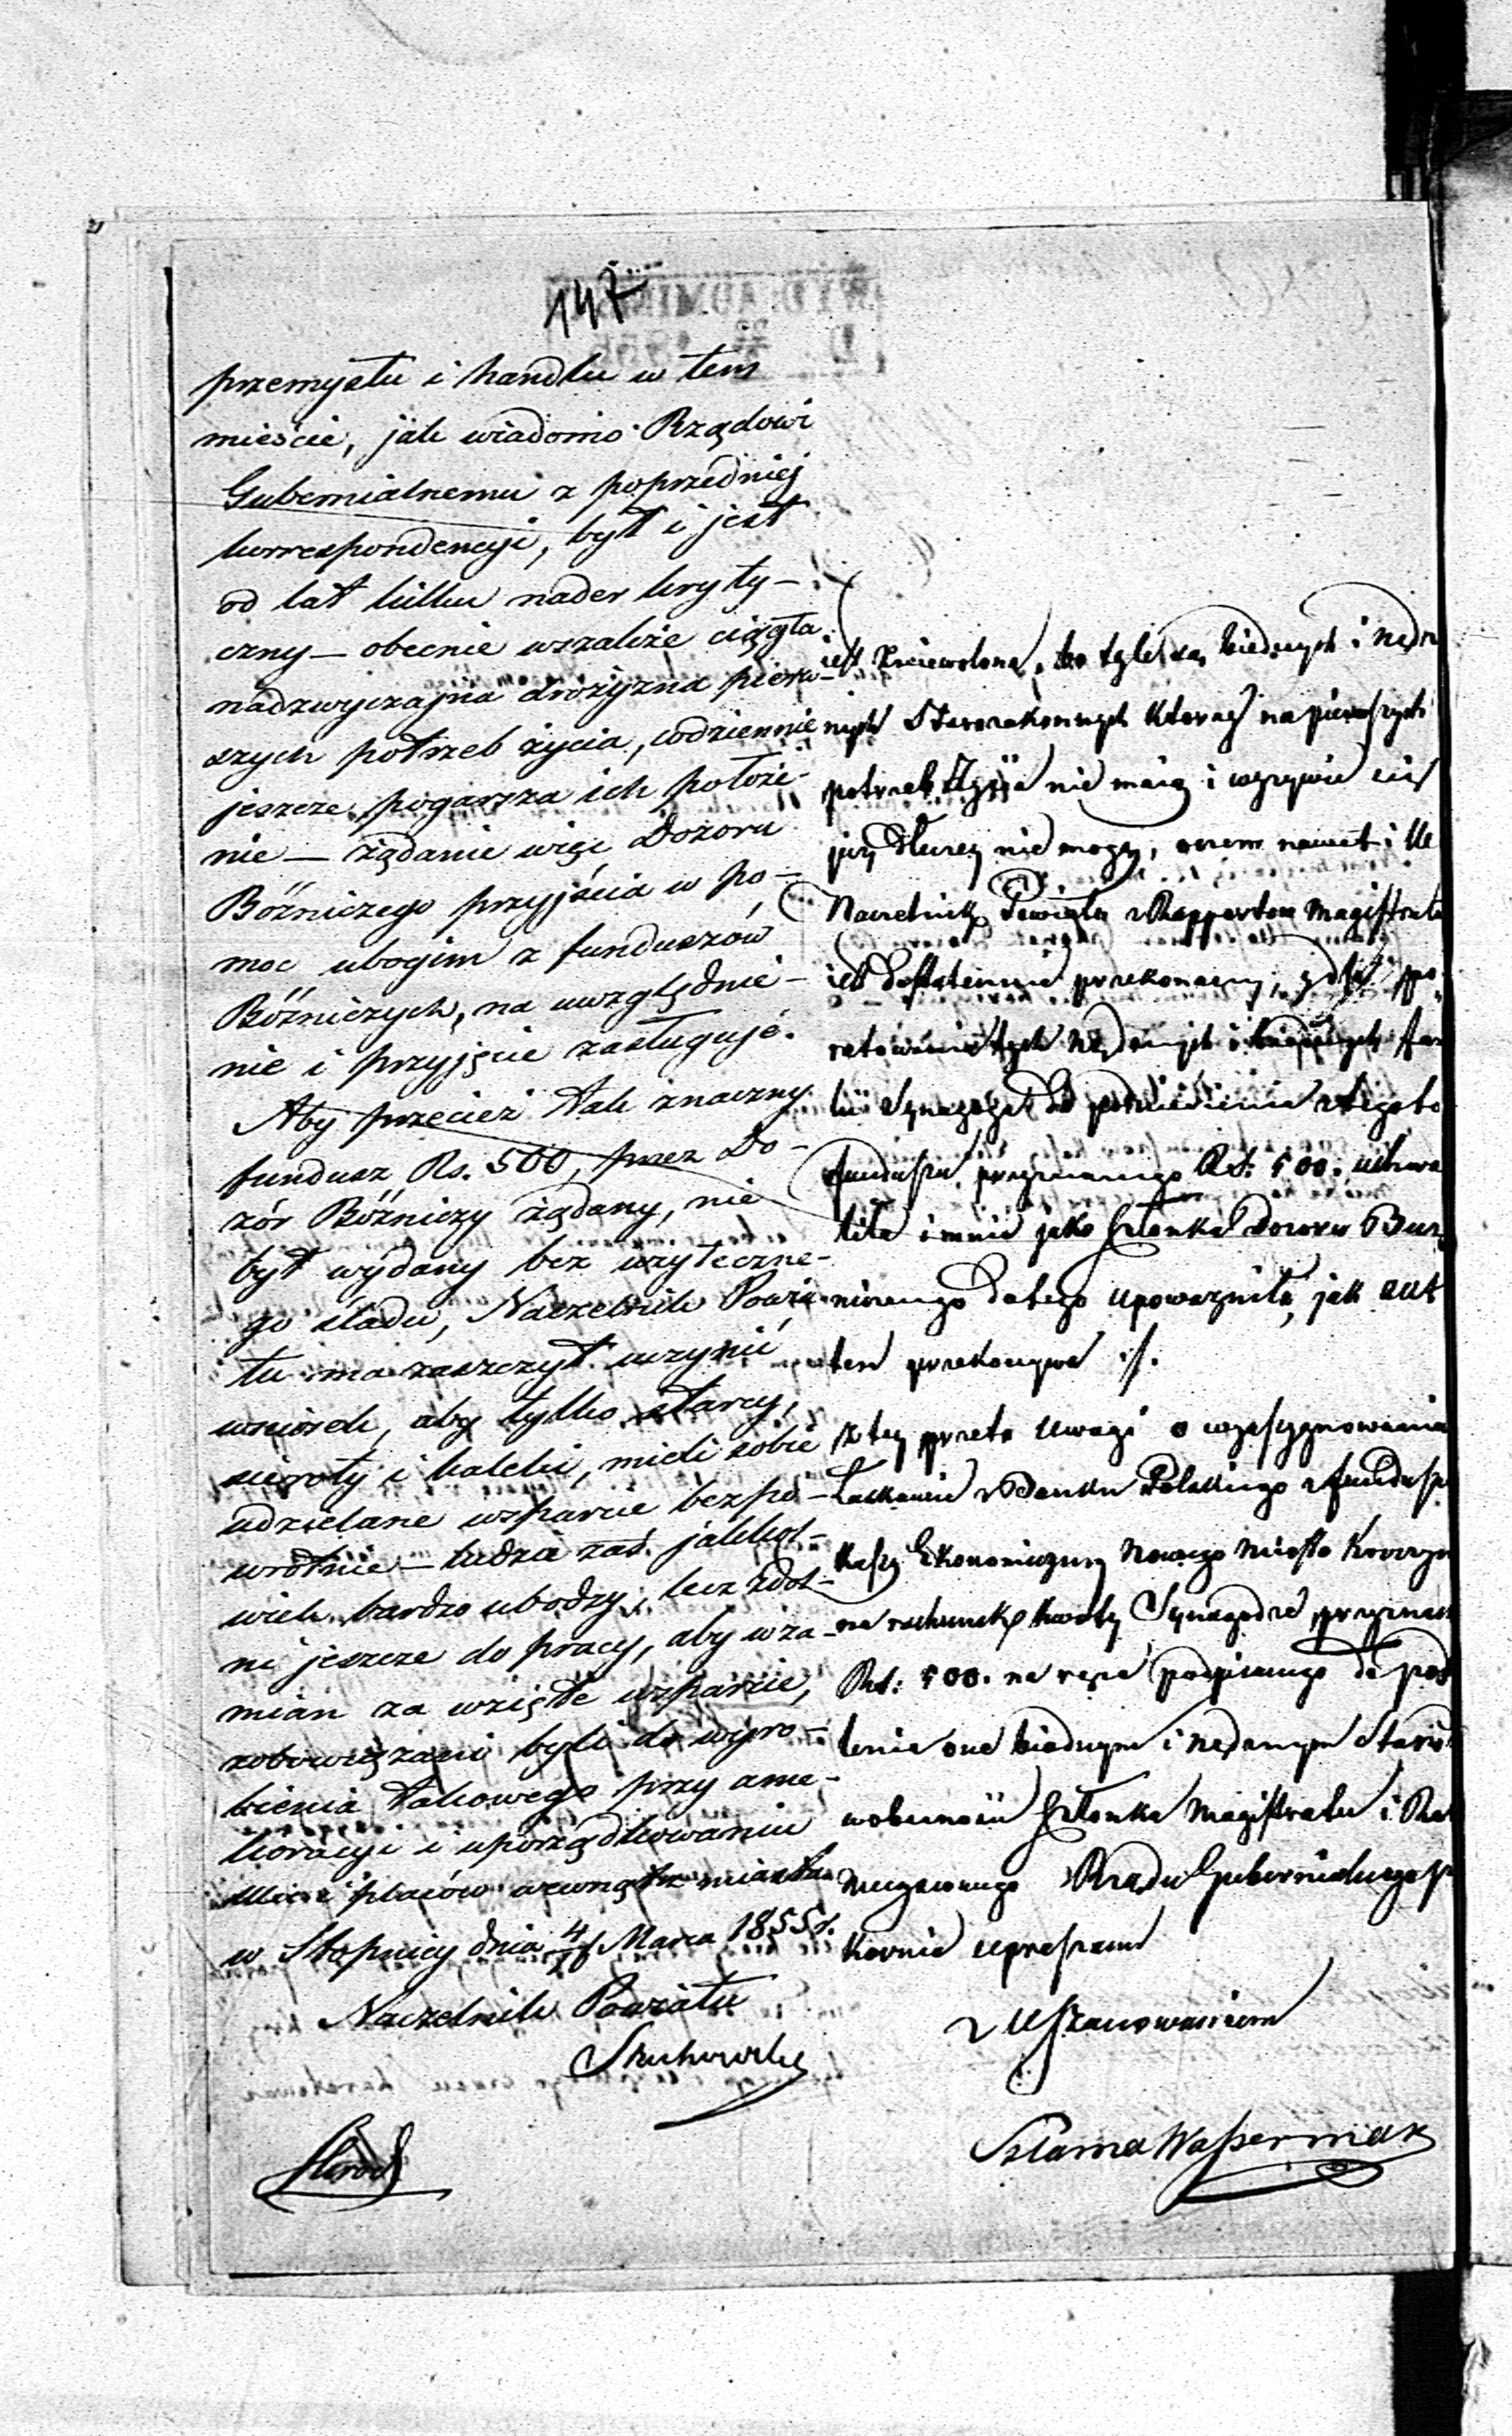 147
przemysłu i handlu w tem
mieście, jak wiadomo Rządowi
Gubernialnemu z poprzedniej
korrespondencyi, był i jest
od lat kilku nader kryty-
czny — obecnie wszakże ciągła
nadzwyczajna drożyzna pierw-
szych potrzeb życia, codziennie
jeszcze pogarsza ich położe-
nie — żądanie więc Dozoru
Bóżniczego przyjścia w po-
moc ubogim z funduszów
Bóżniczych, na uwzględnie-
nie i przyjęcie zasługuje.
Aby przecież tak znaczny
fundusz Rs. 500, przez Do-
zór Bóżniczy żądany, nie
był wydany bez użyteczne-
go śladu, Naczelnik Powia-
tu ma zaszczyt uczynić
wniosek, aby tylko starcy,
sieroty i kaleki, mieli sobie
udzielane wsparcie bezpo-
wrotnie — ludzie zaś jakkol-
wiek bardzo ubodzy, lecz zdol-
ni jeszcze do pracy, aby wza-
mian za wzięte wsparcie,
zobowiązani byli do wyro-
bienia takowego przy ame-
lioracyi i uporządkowaniu
ulic i placów wewnątrz miasta
w Stopnicy dnia 4/16 Marca 1855 r.
Naczelnik Powiatu
jest zniewolona, bo tyle są biednych i nędz
nych Starozakonnych którzy na pierwszych
potrzeb życia nie mają i wyżywić się
już dłużej nie mogą, oczem nawet i W
Naczelnik Powiatu z Rapportów Magistratu
jest dostatecznie przekonany, gdyż po
ratowanie tych nędznych i biednych fa
lii Synagoga do podniesienia z tegoto
funduszu przyznanego Rs: 500. uchwa
liła i mnie jako Członka Dozoru Buż
niczengo do tego upoważniła, jak akt
ten przekonywa ./.
Z tej przeto uwagi o wyasygnowanie
Łaskawie z Banku Polskiego z fundusz
Kassy Ekonomicznej Nowego Miasta Korczyn
na rachunek kwoty Synagodze przyznan
Rs: 500. na ręce podpisanego do pod
lenia one biednym i nędznym Staro
wobecności Członka Magistratu i Ra
Rządu Gubernialnego p
kornie upraszam
z Uszanowaniem
Szlama Waserman